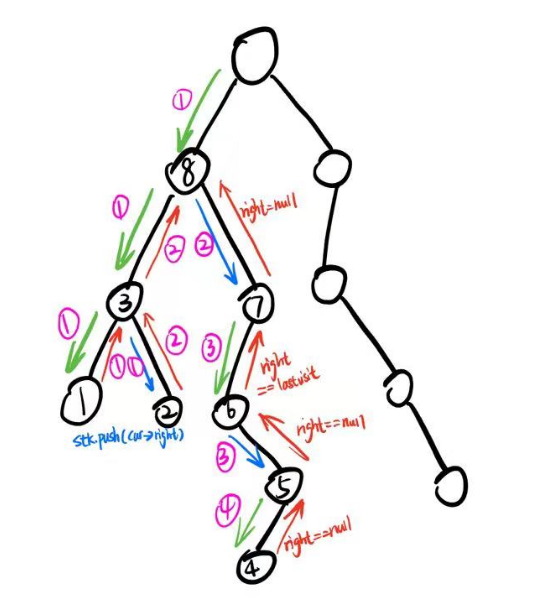 ①
8
①
right=null
②
②
3
①
7
①①
②
③
right
==lastvisit
1
2
6
stk.push(cur->right)
right==null
③
5
④
right==null
4